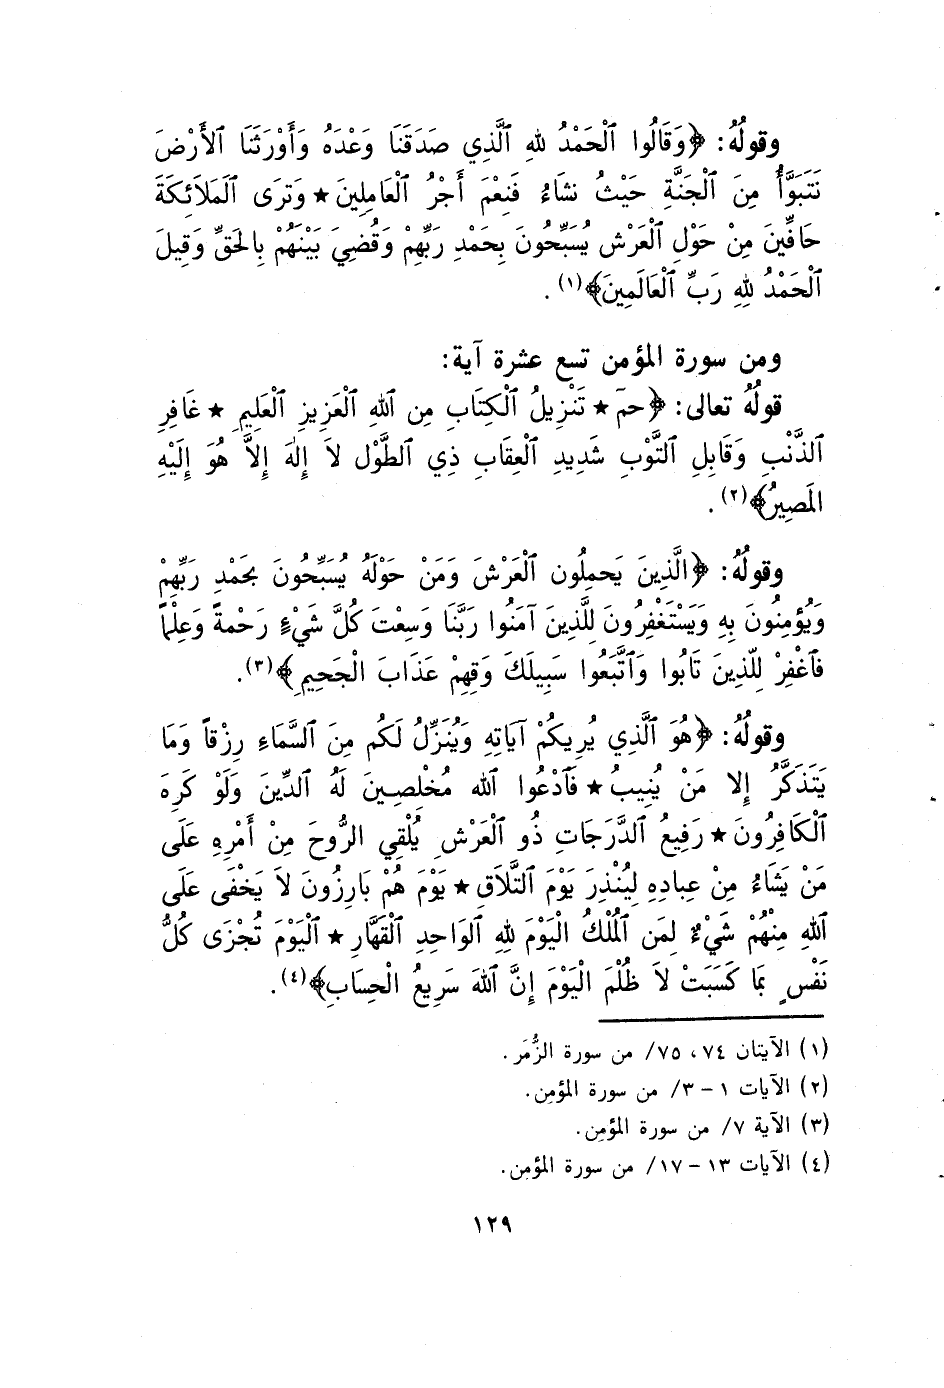 وقولُهُ: ﴿وَقَالُوا ٱلْحَمْدُ للهِ ٱلَّذِي صَدَقَنَا وَعْدَهُ وَأَوْرَثَنَا ٱلأَرْضَ
نَتَبَوَّأُ مِنَ ٱلْجَنَّةِ حَيْثُ نشَاءُ فَنِعْمَ أَجْرُ ٱلْعَامِلِينَ ★ وَترَى ٱلَملَائِكَةَ
حَافِّينَ مِنْ حَوْلِ ٱلْعَرْشِ يُسَبِّحُونَ بِحَمْدِ رَبِّهِمْ وَقُضِيَ بَيْنَهُمْ بِالحَقِّ وَقِيلَ
ٱلْحَمْدُ للهِ رَبِّ ٱلْعَالَمِينَ﴾(١).
ومن سورة المؤمن تسع عشرة آية:
قولُهُ تعالى: ﴿حمٓ ★ تَنْزِيلُ ٱلْكِتَابِ مِن ٱللهِ ٱلْعَزِيزِ ٱلْعَلِيمِ ★ غَافِرِ
ٱلذَّنْبِ وَقَابِلِ ٱلتَّوْبِ شَدِيدِ ٱلْعِقَابِ ذِي ٱلطَّوْلِ لَا إِلٰهَ إِلاَّ هُوَ إِلَيْهِ
المَصِيرُ﴾(٢).
وقولُهُ: ﴿الَّذِينَ يَحمِلُون ٱلْعَرْشَ وَمَنْ حَوْلَهُ يُسَبِّحُونَ بحَمْدِ رَبِّهِمْ
وَيُؤمِنُونَ بِهِ وَيَسْتَغْفِرُونَ لِلَّذِينَ آمَنُوا رَبَّنَا وَسِعْتَ كُلَّ شَيْءٍ رَحْمةً وَعِلْماً
فَٱغْفِرْ لِلّذِينَ تَابُوا وَٱتَّبَعُوا سَبِيلَكَ وَقِهِمْ عَذَابَ الْجَحِيمِ﴾(٣).
وقولُهُ: ﴿هُوَ ٱلَّذِي يُرِيكُمْ آيَاتِهِ وَيُنَزِّلُ لَكُم مِنَ ٱلسَّمَاءِ رِزْقاً وَمَا
يَتَذَكَّرُ إِلا مَنْ يُنِيبُ ★ فَٱدْعُوا ٱلله مُخْلِصِينَ لَهُ ٱلدِّينَ وَلَوْ كَرِهَ
ٱلْكَافِرُونَ ★ رَفِيعُ ٱلدَّرَجَاتِ ذُو ٱلْعَرْشِ يُلْقِي الرُّوحَ مِنْ أَمْرِهِ عَلَى
مَنْ يَشَاءُ مِنْ عِبادِهِ لِيُنْذِرَ يَوْمَ ٱلتَّلَاقِ ★ يَوْمَ هُمْ بَارِزُونَ لاَ يَخْفَى عَلَى
ٱللهِ مِنْهُمْ شَيْءٌ لِمَن ٱلْمُلْكُ الْيَوْمَ للهِ ٱلوَاحِدِ ٱلْقَهَّارِ ★ ٱلْيَوْمَ تُجْزَى كُلُّ
نَفْسٍ بمَا كَسَبَتْ لاَ ظُلْمَ الْيَوْمَ إِنَّ ٱللهَ سَرِيعُ الْحِسَابِ﴾(٤).
(١) الآيتان ٧٤، ٧٥/ من سورة الزُّمَر.
(٢) الآيات ١ - ٣/ من سورة المؤمِن.
(٣) الآية ٧/ من سورة المؤمِن.
(٤) الآيات ١٣ - ١٧/ من سورة المؤمِن.
١٢٩